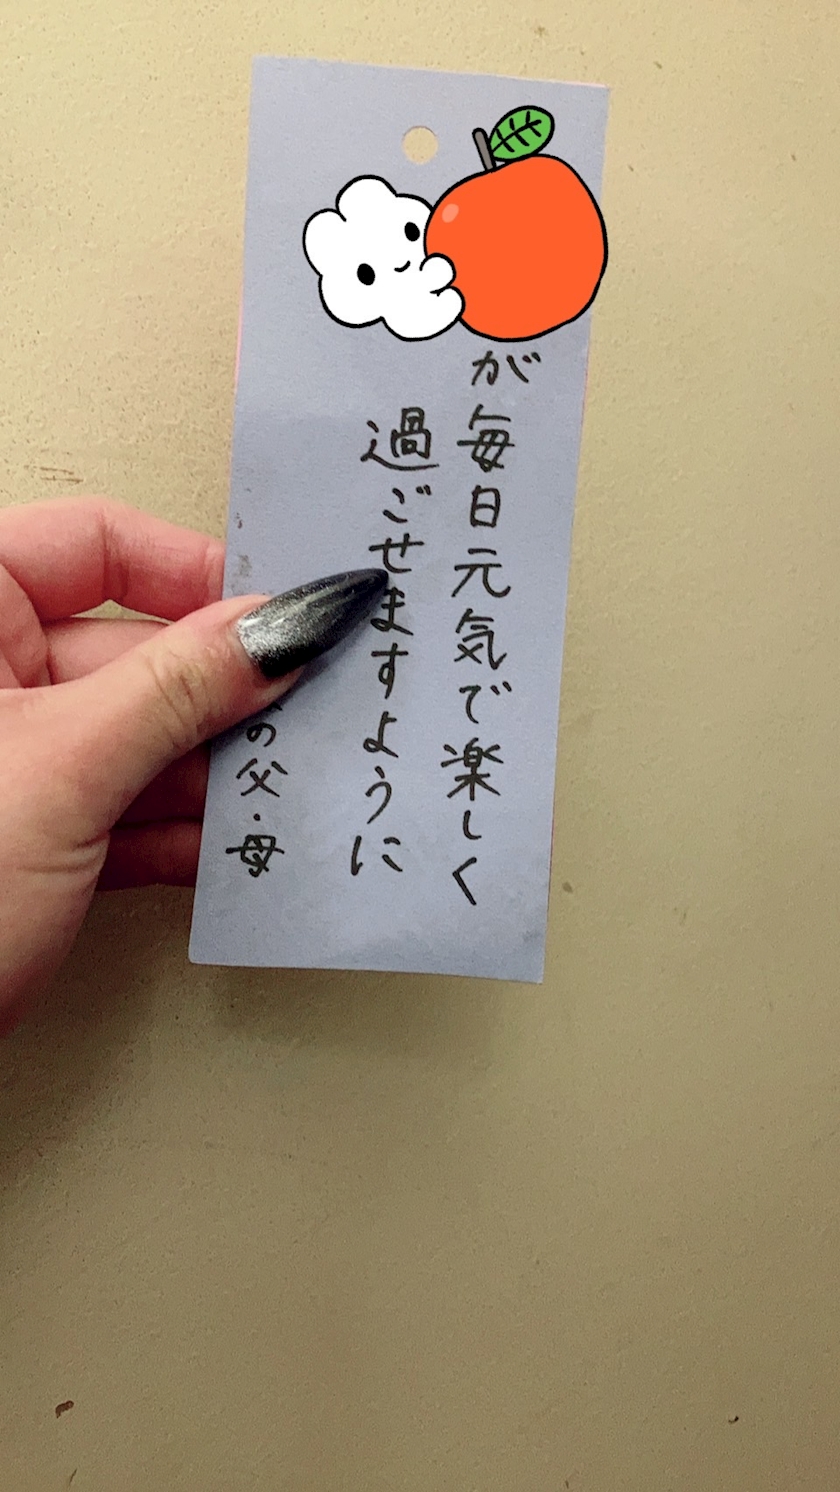 が毎日元気で楽しく
過ごせますように
の父・母